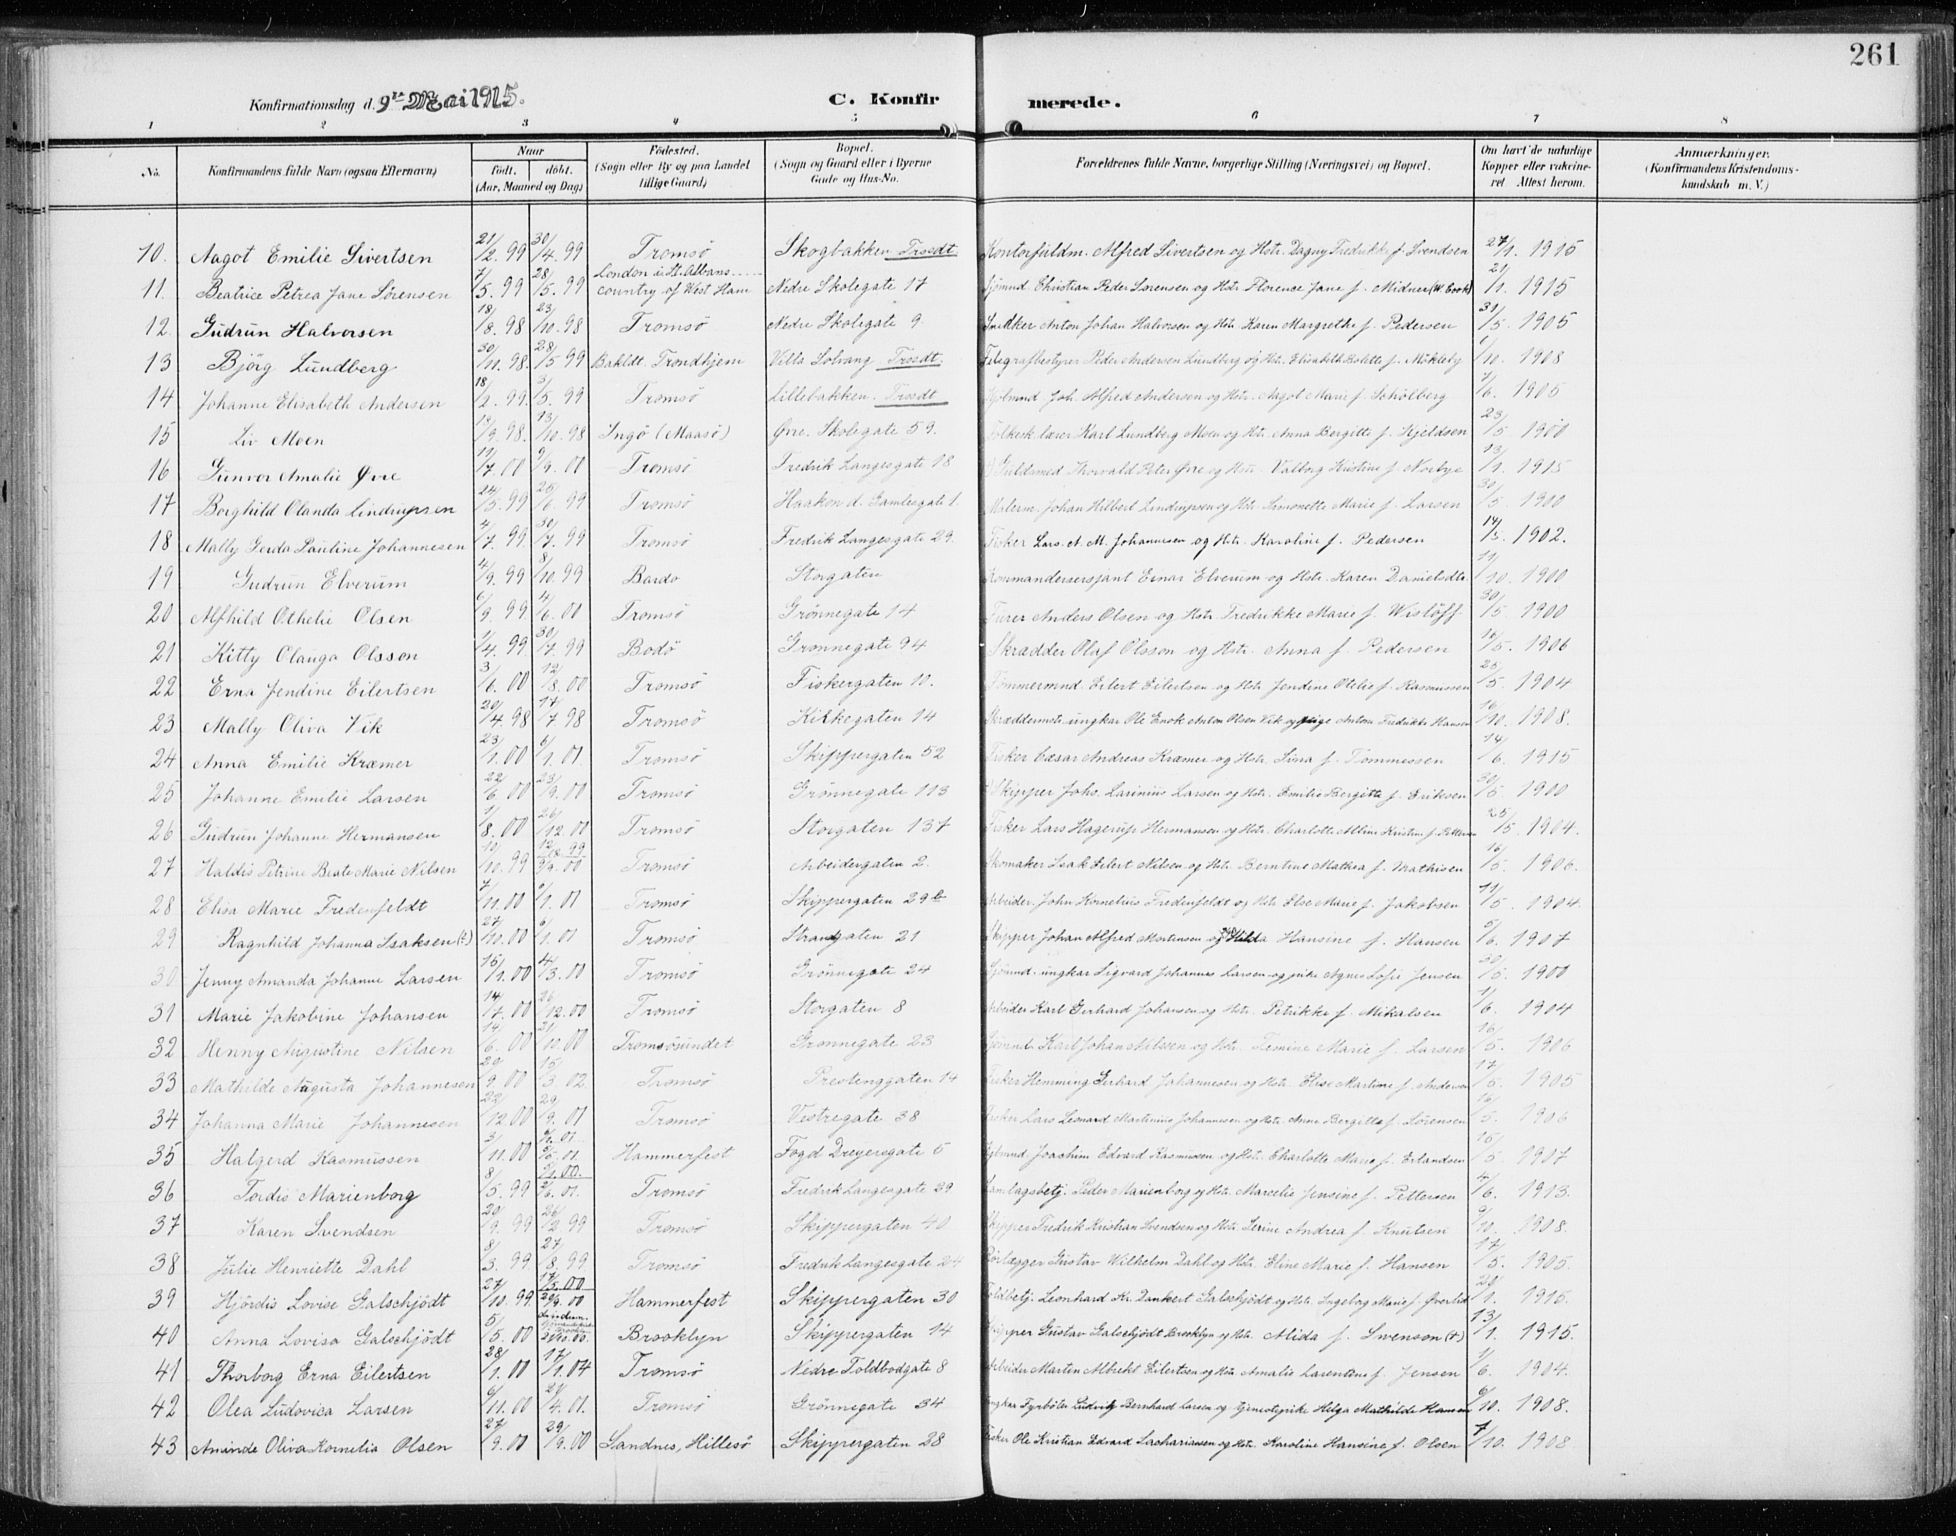 261
Konfirmationsdag d. 9de Mai 1915. C. Konfirmerede.
1 2 3 4 5 6 7 8
No. Konfirmandens fulde Navn (ogsaa Efternavn) Naar født. døbt. (Aar, Maaned og Dag) Fødested. (Sogn eller By og paa Landet tillige Gaard) Bopæl. (Sogn og Gaard eller i Byerne Gade og Hus-No. Forældrenes fulde Navne, borgerlige Stilling (Næringsvei) og Bopæl. Om havt de naturlige Kopper eller vakcineret. Attest herom. Anmærkninger. (Konfirmandens Kristendomskundskab m. V.)
10. Aagot Emilie Sivertsen 21/2. 99 30/4. 99 Tromsö Skogbakken Trosdt. Kontorfuldm. Alfred Sivertsen og Hstr. Dagny Fredrikke f. Svendsen 27/1. 1915
11. Beatrice Petrea Jane Sörensen 7/5. 99 28/5. 99 London i St. Albans country of West Ham Nedre Skolegate 17 Sjömnd Christian Peder Sørensen og Hstr. Florence Jane f. Midner (W. Cook) 21/1. 1915
12. Gudrun Halvorsen 18/8. 98 23/10. 98 Tromsö Nedre Skolegate 9 Snedker Anton Johan Halvorsen og Hstr. Karen Margrethe f. Pedersen 31/5. 1905
13 Björg Lundberg 30/11. 98. 28/5 99 Bakldt. Trondhjem Villa Solvang Trosdt. Telegrafbestyrer Peder Andersen Lundberg og Hstr. Elisabeth Bolette f. Mükleby /10. 1908
14 Johanne Elisabeth Andersen 18/2. 99. 3/5. 99 Tromsö Lillebakken. Trosdt Joh. Alfred Andersen og Hstr. Aagot Marie f. Schölberg 7/6. 1905
15 Liv Moen /9. 98. 13/10. 98 Ingö (Maasö) Øvre. Skolegate 59. Folkesk. lærer Karl Lundberg Moen og Hstr. Anna Bergitte f. Kjeldsen 23/5 1900
16 Gunvor Amalie Øvre 19/7. 00 9/9. 00 Tromsö Fredrik Langesgate 18 Guldsmed Thorvald Peter Øvre og Hstr. Valborg Kristine f. Norbye 13/1. 1915
17 Borghild Olanda Lindrupsen 24/5. 99 25/6. 99 Tromsö Haakon d. Gamlesgate 1. Malerm. Johan Hilbert Lindrupsen og Hstr. Simonette Marie f. Larsen 30/5 1900
18 Mally Gerda Pauline Johannesen 4/7. 99. 30/7. 99 Tromsö Fredrik Langesgate 29. Fisker Lars. A. M. Johannesen og Hstr. Karoline f. Pedersen 14/5. 1902.
19 Gudrun Elverum 4/9. 99 8/10. 99 Bardo Storgaten Kommandersersjant Einar Elverum og Hstr. Karen Danielsdtr. 11/10. 1900
20 Alfhild Othelie Olsen 6/9. 99 4/6. 00 Tromsö Grönnegate 14 Furer Anders Olsen og Hstr. Fredrikke Marie f. Wistöff 30/5. 1900
21 Kitty Olauga Olsson /4. 99. 30/7. 99 Bodö Grönnegate 94 Skrædder Olaf Olsson og Hstr. Anna f. Pedersen 16/5. 1906
22 Erna Jendine Eilertsen 3/6. 00 12/8. 00 Tromsö Fiskergaten 10. Tömmermnd. Eilert Eilertsen og Hstr. Jendine Otelie f. Rasmussen 25/5. 1904
23 Mally Oliva Vik 20/4. 98 17/7. 98 Tromsö Kirkegaten 14 Skræddermstr. ungkar Ole Enok Anton Olsen Vik og pige Antona Fredrikke Hansen 16/10. 1908.
24 Anna Emilie Kræmer 23/1. 00 6/1. 01 Tromsö Skippergaten 52 Fisker Cæsar Andreas Kræmer og Hstr. Lina f. Tömmessen 14/6. 1915
25 Johanne Emilie Larsen 22/6. 00 23/9. 00 Tromsö Grönnegate 113 Skipper Johs. Larinius Larsen og Hstr. Emilie Bergitte f. Eriksen 30/5 1900
26 Gudrun Johanne Hermansen 1/8. 00 26/12. 00 Tromsö Storgaten 137 Fisker Lars Hagerup Hermansen og Hstr. Charlotte Albine Kristine f. Pettersen 25/5. 1904.
27 Haldis Petrine Beate Marie Nilsen 10/10. 99 12/8. 99 9/9. 00 Tromsö Arbeidergaten 2. Skomaker Isak Eilert Nilsen og Hstr. Berntine Mathea f. Mathisen 16/5. 1906.
28 Elisa Marie Fredenfeldt 7/11. 00 /1. 01 Tromsö Skippergaten 29b Arbeider. John Kornelius Fredenfeldt og Hstr. Else Marie f. Jakobsen 11/5. 1904.
29 Ragnhild Johanna Isaksen (t) 27/10. 00 6/1. 01 Tromsö Strandgaten 21 Skipper Johan Alfred Mortensen og Hilda Hansine f. Hansen 5/6. 1907
30 Jenny Amanda Johanne Larsen 15/1. 00 4/3. 00 Tromsö Grönnegate 24 Sjömnd. ungkar Sigvard Johannes Larsen og pike Agnes Sofie Jensen 30/5. 1900
31 Marie Jakobine Johansen 14/7. 00 26/12. 00 Tromsö Storgaten 8 Arbeider Karl Gerhard Johansen og Hstr. Petrikke f. Mikalsen 1/6. 1904
32 Henny Augustine Nilsen 14/6. 00 21/10. 00 Tromsösundet Grønnegate 23 Sjömnd. Karl Johan Nilssen og Hstr. Temine Marie f. Larsen 16/5. 1906
33 Mathilde Augusta Johannesen 20/9. 00 15/3. 02. Tromsö Prestenggaten 14 Fisker Hemming Gerhard Johannesen og Hstr. Elise Martine f. Andersen 17/5. 1905
34 Johanna Marie Johannesen 22/12. 00 29/9. 01 Tromsö Vestregate 38 Fisker Lars Leonard Martinius Johannesen og Hstr. Anne Bergitte f. Sörensen 16/5. 1906
35 Halgerd Rasmussen 3/11. 00 /5. 01. Hammerfest Fogd Dreyersgate 5 Joachim Edvard Rasmussen og Hstr. Charlotte Marie f. Erlandsen 15/5. 1907
36 Tordis Marienborg 8/5. 99 /6. 01. Tromsö Fredrik Langesgate 29. Samlagsbetj. Peder Marienborg og Hstr. Marcelie Jensine f. Pettersen 4/6. 1913.
37 Karen Svendsen 20/9. 99 26/12 99 Tromsö Skippergaten 40 Skipper Fredrik Kristian Svendsen og Hstr. Serine Andrea f. Knutsen 9/10. 1908.
38 Julie Henriette Dahl 8/3. 99 27/8. 99 Tromsö Fredrik Langesgate 24 Rörlægger Gustav Wilhelm Dahl og Hstr. Eline Marie f. Hansen 17/5. 1905.
39 Hjördis Lovise Galschjödt 27/10. 99. 17/5. 00 29/9. 00 Hammerfest Skippergaten 30 Toldbetj. Leonhard Kr. Dankert Galschjödt og Hstr. Ingeborg Marie f. Øverlid 20/1. 1915.
40 Anna Lovisa Galschjödt 5/5. 00 Brooklyn Skippergaten 14 Skipper Gustav Galschjödt Brooklyn og Hstr. Alida f. Svenson (t) 13/1. 1915.
41 Thorborg Erna Eilertsen 28/1. 00 17/1. 04 Tromsö Nedre Toldbodgate 8 Arbeider Marten Albrekt Eilertsen og Hstr. Amalie Larentine f. Jensen 1/6. 1904.
42 Olea Ludovica Larsen 6/11. 00 21/4. 01. Tromsö Grönnegate 34 Ungkar Fyrböter Ludvig Bernhard Larsen og tjenestepike Helga Mathilde Hansen 6/10. 1908.
43 Aminde Oliva Kornelia Olsen 27/9. 00 29/9. 00 Sandnes, Hillesö Skippergaten 28 Fisker Ole Kristian Edvard Sachariassen og Hstr. Karoline Hansine f. Olsen 7/10. 1908